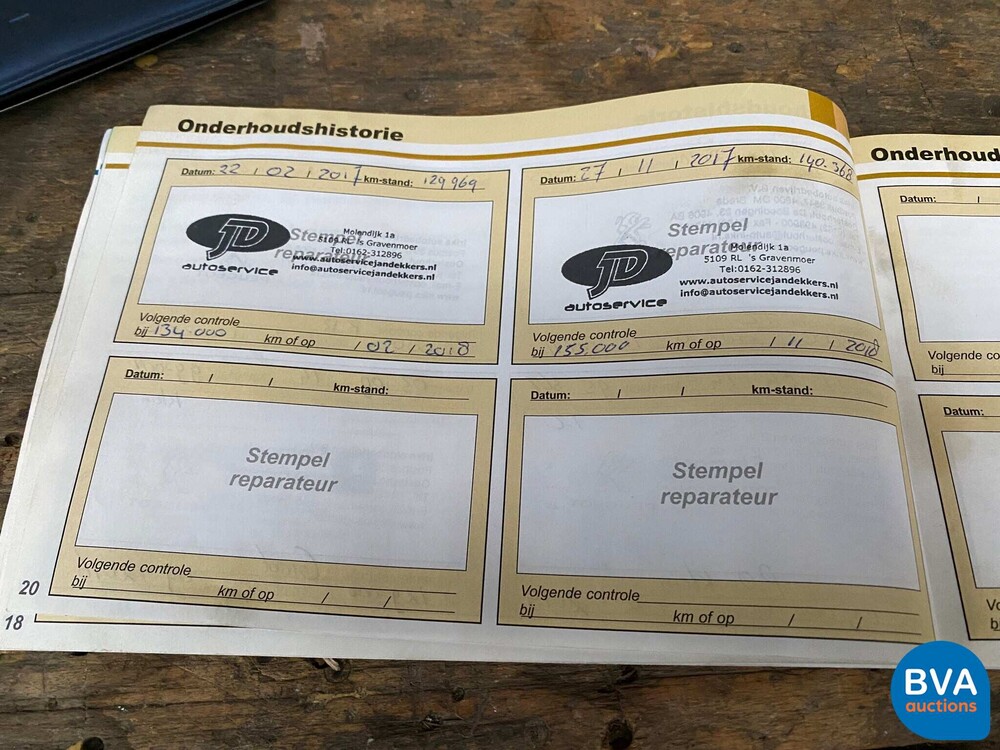 Onderhoudshistorie
Datum: 22 / 02 / 2017 km-stand: 129969
JD
autoservice
Stempel
reparateur
Molendijk 1a
5109 RL 's Gravenmoer
Tel:0162-312896
www.autoservicejandekkers.nl
info@autoservicejandekkers.nl
Volgende controle
bij 134.000 km of op / 02 / 2018
Datum: 27 / 11 / 2017 km-stand: 140.368
JD
autoservice
Stempel
reparateur
Molendijk 1a
5109 RL 's Gravenmoer
Tel:0162-312896
www.autoservicejandekkers.nl
info@autoservicejandekkers.nl
Volgende controle
bij 155.000 km of op / 11 / 2018
Datum: / / km-stand:
Stempel
reparateur
Volgende controle
bij km of op / /
Datum: / / km-stand:
Stempel
reparateur
Volgende controle
bij km of op / /
20
18
Onderhoud
Datum: /
Volgende co
bij
Datum:
Vo
b
BVA
auctions